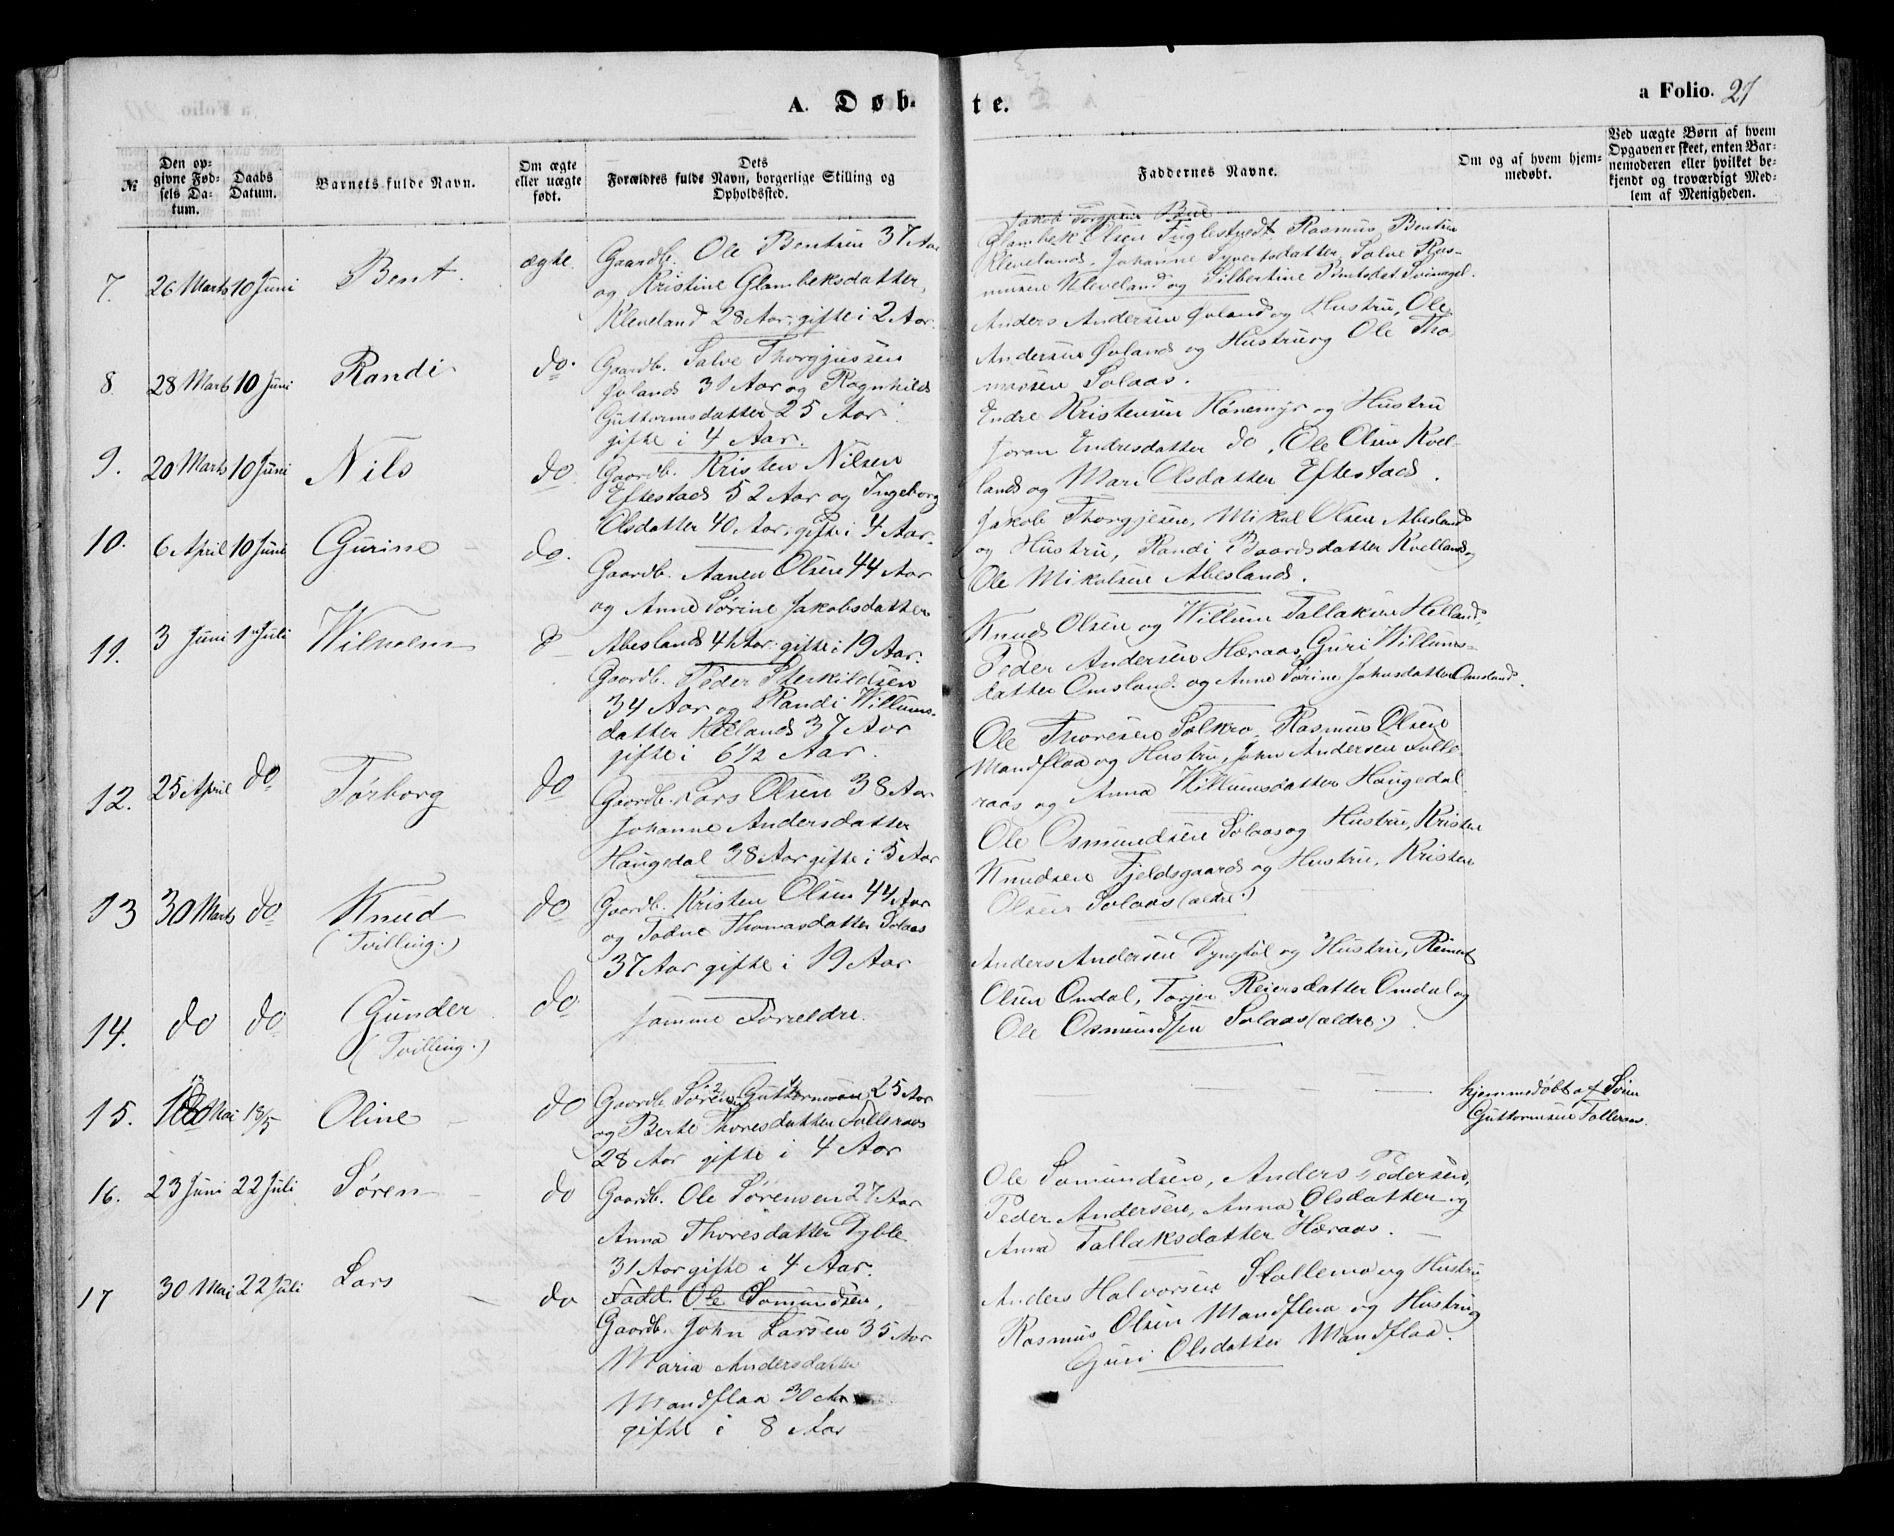 A. Døbte.
a Folio. 21
№
Den opgivne Fødsels Datum.
Daabs Datum.
Barnets fulde Navn.
Om ægte eller uægte født.
Dets Forældres fulde Navn, borgerlige Stilling og Opholdssted.
Faddernes Navne.
Om og af hvem hjemmedøbt.
Ved uægte Børn af hvem Opgaven er skeet, enten Barnemoderen eller hvilket bekjendt og troværdigt Medlem af Menigheden.
7. 26 Marts 10 Juni Bent. ægte.
Gaardb. Ole Bentsen 37 Aar
og Kristine Glambeksdatter,
Kleveland 28 Aar, gifte i 2 Aar.
Glambek Olsen Fuglestvedt, Rasmus Bentsen
Kleveland, Johanne Syvertsdatter, Salve Ras-
musen Kleveland og Silbertine Bentsdat Svinagel.
8. 28 Marts 10 Juni Randi do.
Gaardb. Salve Thorgjussen
Øvland 31 Aar og Ragnhild
Guttormsdatter 25 Aar
gifte i 4 Aar.
Anders Andersen Øvland og Hustru, Ole
Andersen Øvland og Hustru og Ole Tho-
massen Solaas.
9. 20 Marts 10 Juni Nils do.
Gaardb. Kristen Nilsen
Eftestad 52 Aar og Ingeborg
Olsdatter 40 Aar, gifte i 4 Aar.
Endre Kristensen Hønemyr og Hustru
Joran Endresdatter do, Ole Olsen Kvel-
land og Mari Olsdatter Eftestad.
10. 6 April 10 Juni Gurine do.
Gaardb. Aanen Olsen 44 Aar
og Anne Sørine Jakobsdatter
Abesland 41 Aar gifte i 19 Aar.
Jakob Thorgjesen, Mikal Olsen Abesland
og Hustru, Randi Baardsdatter Kvelland og
Ole Mikalsen Abesland.
11. 3 Juni 1 Juli Wilhelm
Gaardb. Peder Therkildsen
34 Aar og Randi Willums-
datter Hæland 37 Aar
gifte i 6 1/2 Aar.
Knud Olsen og Willum Tallaksen Helland,
Peder Andersen Høraas, Guri Willums-
datter Omsland og Anne Sørine Johnsdatter Omsland.
12. 25 April do Torborg do
Gaardb. Lars Olsen 38 Aar
Johanne Andersdatter
Haugedal 38 Aar gifte i 5 Aar
Ole Thoresen Solkro, Rasmus Olsen
Mandflaa og Hustru, John Andersen Folle-
raas og Anna Willumsdatter Haugedal.
13 30 Marts do Knud do
(Tvilling.)
Gaardb. Kristen Olsen 44 Aar
og Todne Thomasdatter Solaas
37 Aar gifte i 19 Aar
Ole Osmundsen Solaas og Hustru, Kristen
Knudsen Fjeldsgaard og Hustru, Kristen
Olsen Solaas (ældre.)
14. do do Gunder do
(Tvilling.)
samme Forældre.
Anders Andersen Dyngtøl og Hustru, Reinert
Olsen Omdal, Torjer Reiersdatter Omdal og
Ole Osmundsen Solaas (ældre.)
15. Mai 18/5 Oline do
Gaardb. Søren Guttormsen 25 Aar
og Berte Thoresdatter Folleraas
28 Aar gifte i 4 Aar
hjemmedøbt af Søren
Guttormsen Folleraas.
16. 23 Juni 22 Juli Søren do
Gaardb. Ole Sørensen 27 Aar
Anna Thoresdatter Dyble
31 Aar gifte i 4 Aar.
Ole Somundsen, Anders Pedersen,
Peder Andersen, Anna Olsdatter og
Anna Tallaksdatter Høraas.
17 30 Mai 22 Juli Lars do
Fadd. Ole Somundsen,
Gaardb. John Larsen 35 Aar
Maria Andersdatter
Mandflaa 30 Aar
gifte i 8 Aar
Anders Halvorsen Stallemo og Hustru,
Rasmus Olsen Mandflaa og Hustru og
Guri Olsdatter Mandflaa.